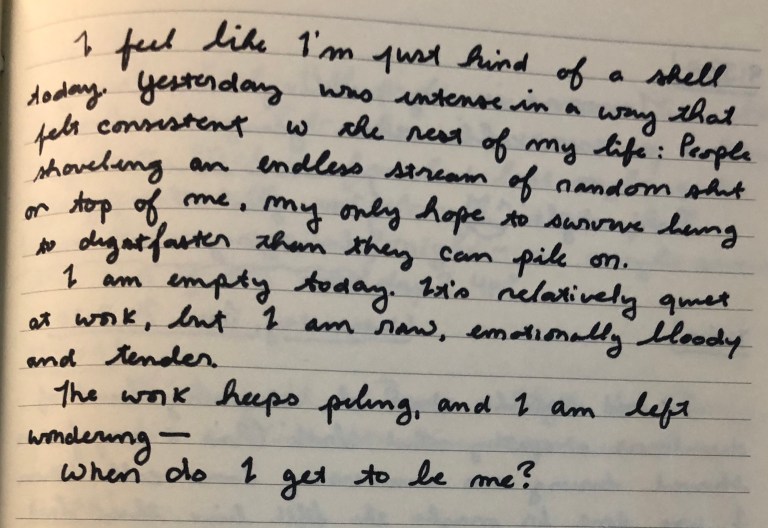 I feel like I'm just kind of a shell
today. Yesterday was intense in a way that
felt consistent w the rest of my life: People
shoveling an endless stream of random shit
on top of me, my only hope to survive being
to dig faster than they can pile on.
I am empty today. It's relatively quiet
at work, but I am raw, emotionally bloody
and tender.
The work keeps piling, and I am left
wondering—
When do I get to be me?